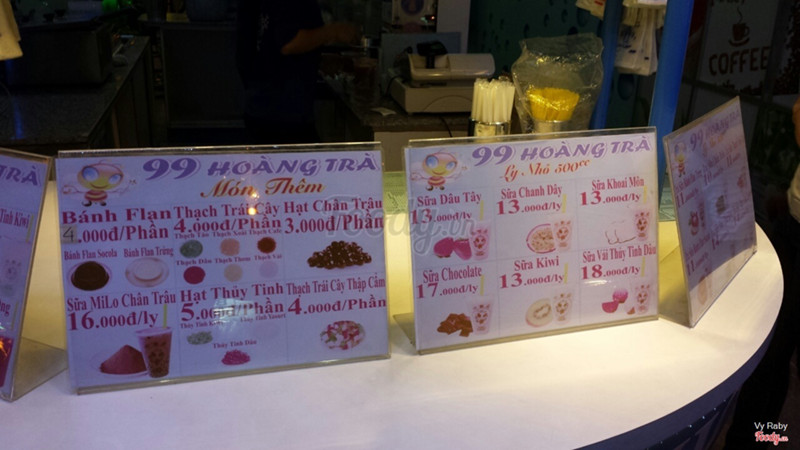 99 HOÀNG TRÀ
Món Thêm
Bánh Flan
4.000đ/Phần
Thạch Trái Cây
4.000đ/Phần
Hạt Chân Trâu
3.000đ/Phần
Bánh Flan Socola
Bánh Flan Trứng
Thạch Dâu
Thạch Thơm
Thạch Vải
Sữa MiLo Chân Trâu
16.000đ/ly
Hạt Thủy Tinh
5.000đ/Phần
Thủy Tinh Dâu
Thạch Trái Cây Thập Cẩm
4.000đ/Phần
99 HOÀNG TRÀ
Ly Nhỏ 500cc
Sữa Dâu Tây
13.000đ/ly
Sữa Chanh Dây
13.000đ/ly
Sữa Khoai Môn
13.000đ/ly
Sữa Chocolate
17.000đ/ly
Sữa Kiwi
13.000đ/ly
Sữa Vải Thủy Tinh Dâu
18.000đ/ly
TRÀ
Tinh Kiwi
COFFEE
Foody.vn
Vy Raby
Foody.vn